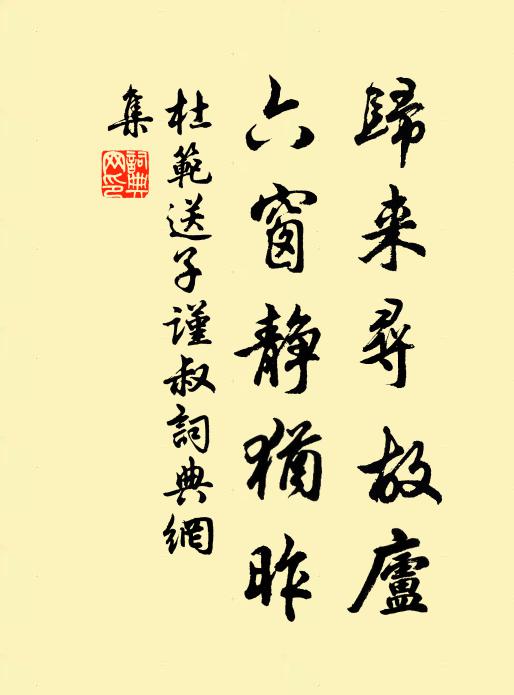 歸来尋故廬
六窗静猶昨
杜範送子謹叔詞典網
集
詞典
网印